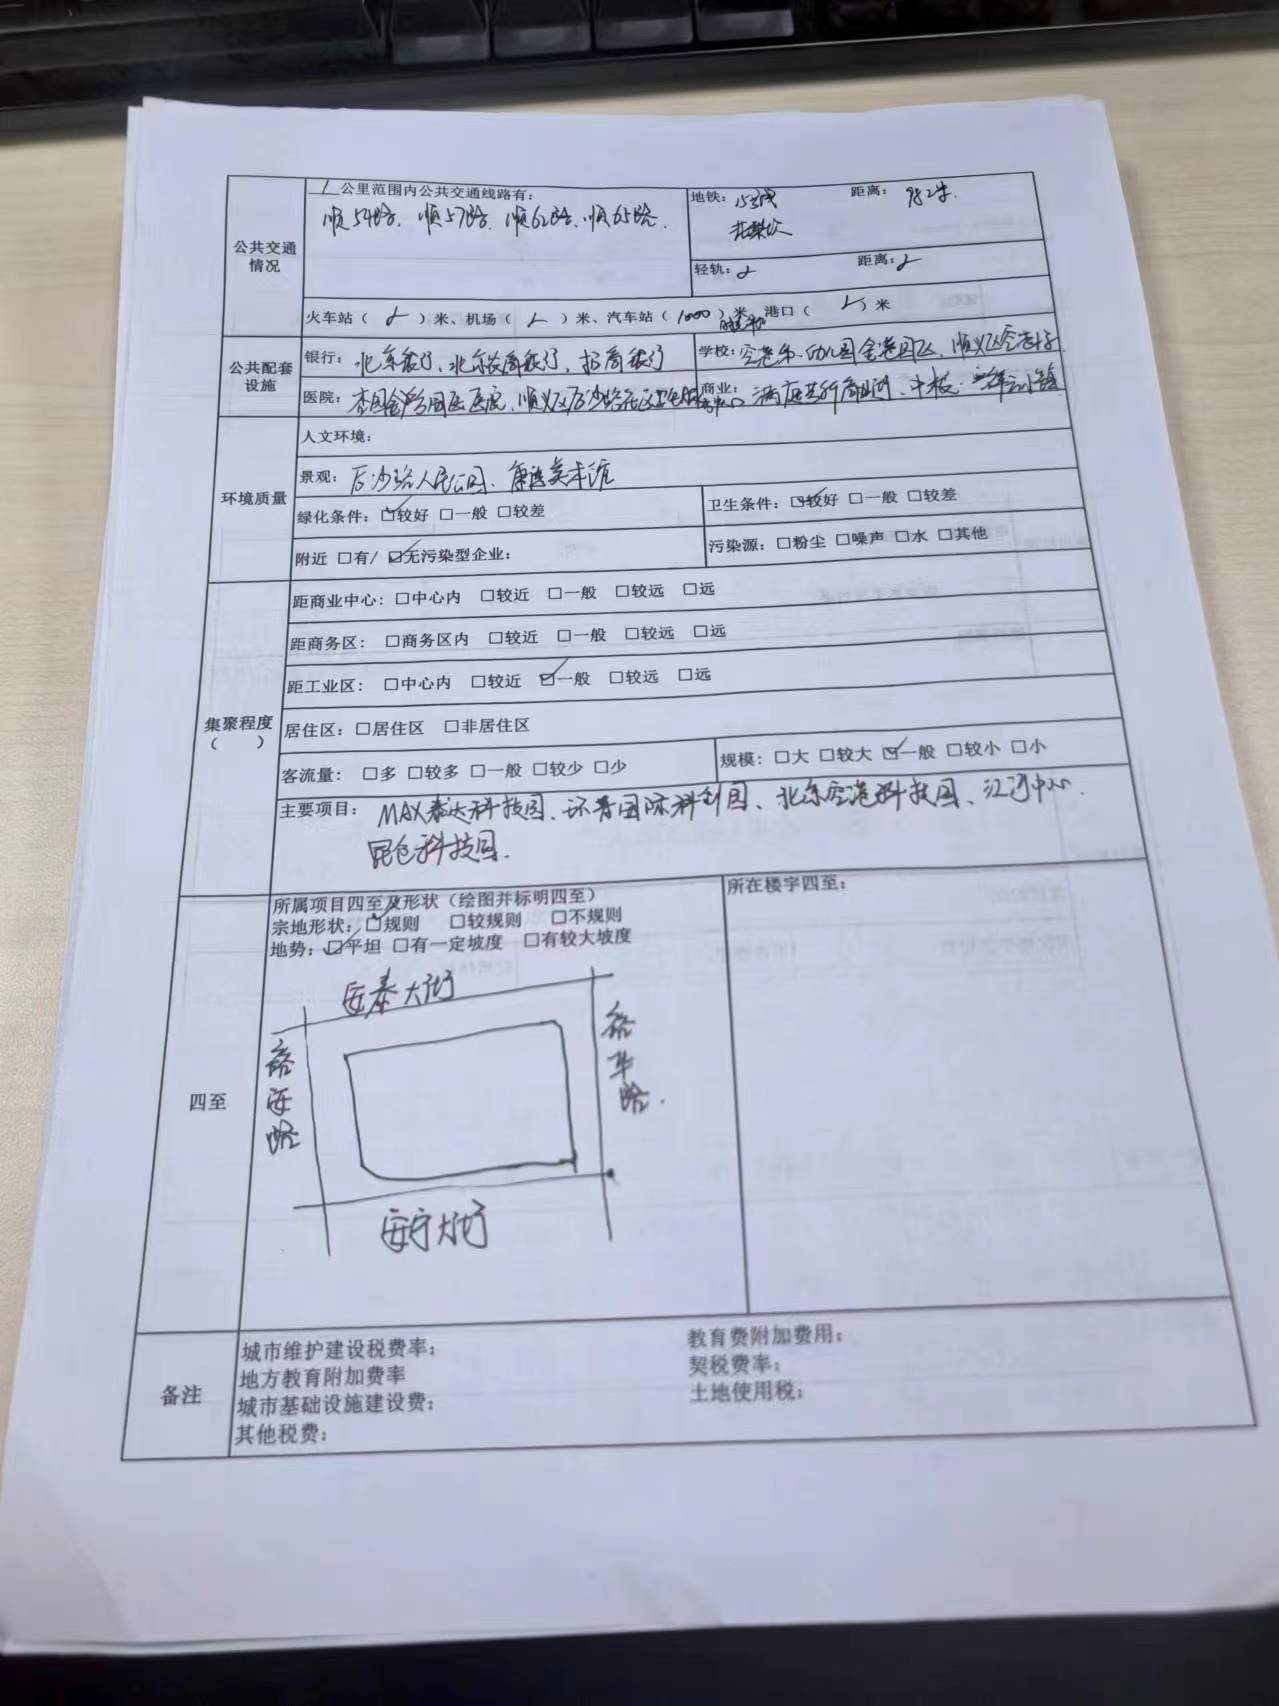 公共交通情况
1公里范围内公共交通线路有：
顺54路、顺57路、顺62路、顺65路.
地铁：15号线 花梨坎 距离：982米.
轻轨：/ 距离：/
火车站（ / ）米、机场（ / ）米、汽车站（ 1000 ）米、港口（ / ）米
公共配套设施
银行：北京银行、北京农商银行、招商银行
学校：空港第一幼儿园金港园区、顺义区空港
医院：国医医院、顺义区后沙峪社区卫生服务中心
商业：满庭芳
环境质量
人文环境：
景观：后沙峪人民公园、美术馆
绿化条件：☑较好 □一般 □较差
卫生条件：☑较好 □一般 □较差
附近 □有/ ☑无污染型企业：
污染源：□粉尘 □噪声 □水 □其他
集聚程度（ ）
距商业中心：□中心内 □较近 □一般 □较远 □远
距商务区：□商务区内 □较近 □一般 □较远 □远
距工业区：□中心内 □较近 ☑一般 □较远 □远
居住区：□居住区 □非居住区
客流量：□多 □较多 □一般 □较少 □少
规模：□大 □较大 ☑一般 □较小 □小
主要项目：MAX泰达科技园、环普国际科创园、北京空港科技园、江河中心、
昆仑科技园.
四至
所属项目四至及形状（绘图并标明四至）
宗地形状：☑规则 □较规则 □不规则
地势：☑平坦 □有一定坡度 □有较大坡度
所在楼宇四至：
安泰大街
裕安路
裕华路.
安宁大街
备注
城市维护建设税费率：
教育费附加费用：
地方教育附加费率
契税费率：
城市基础设施建设费：
土地使用税：
其他税费：